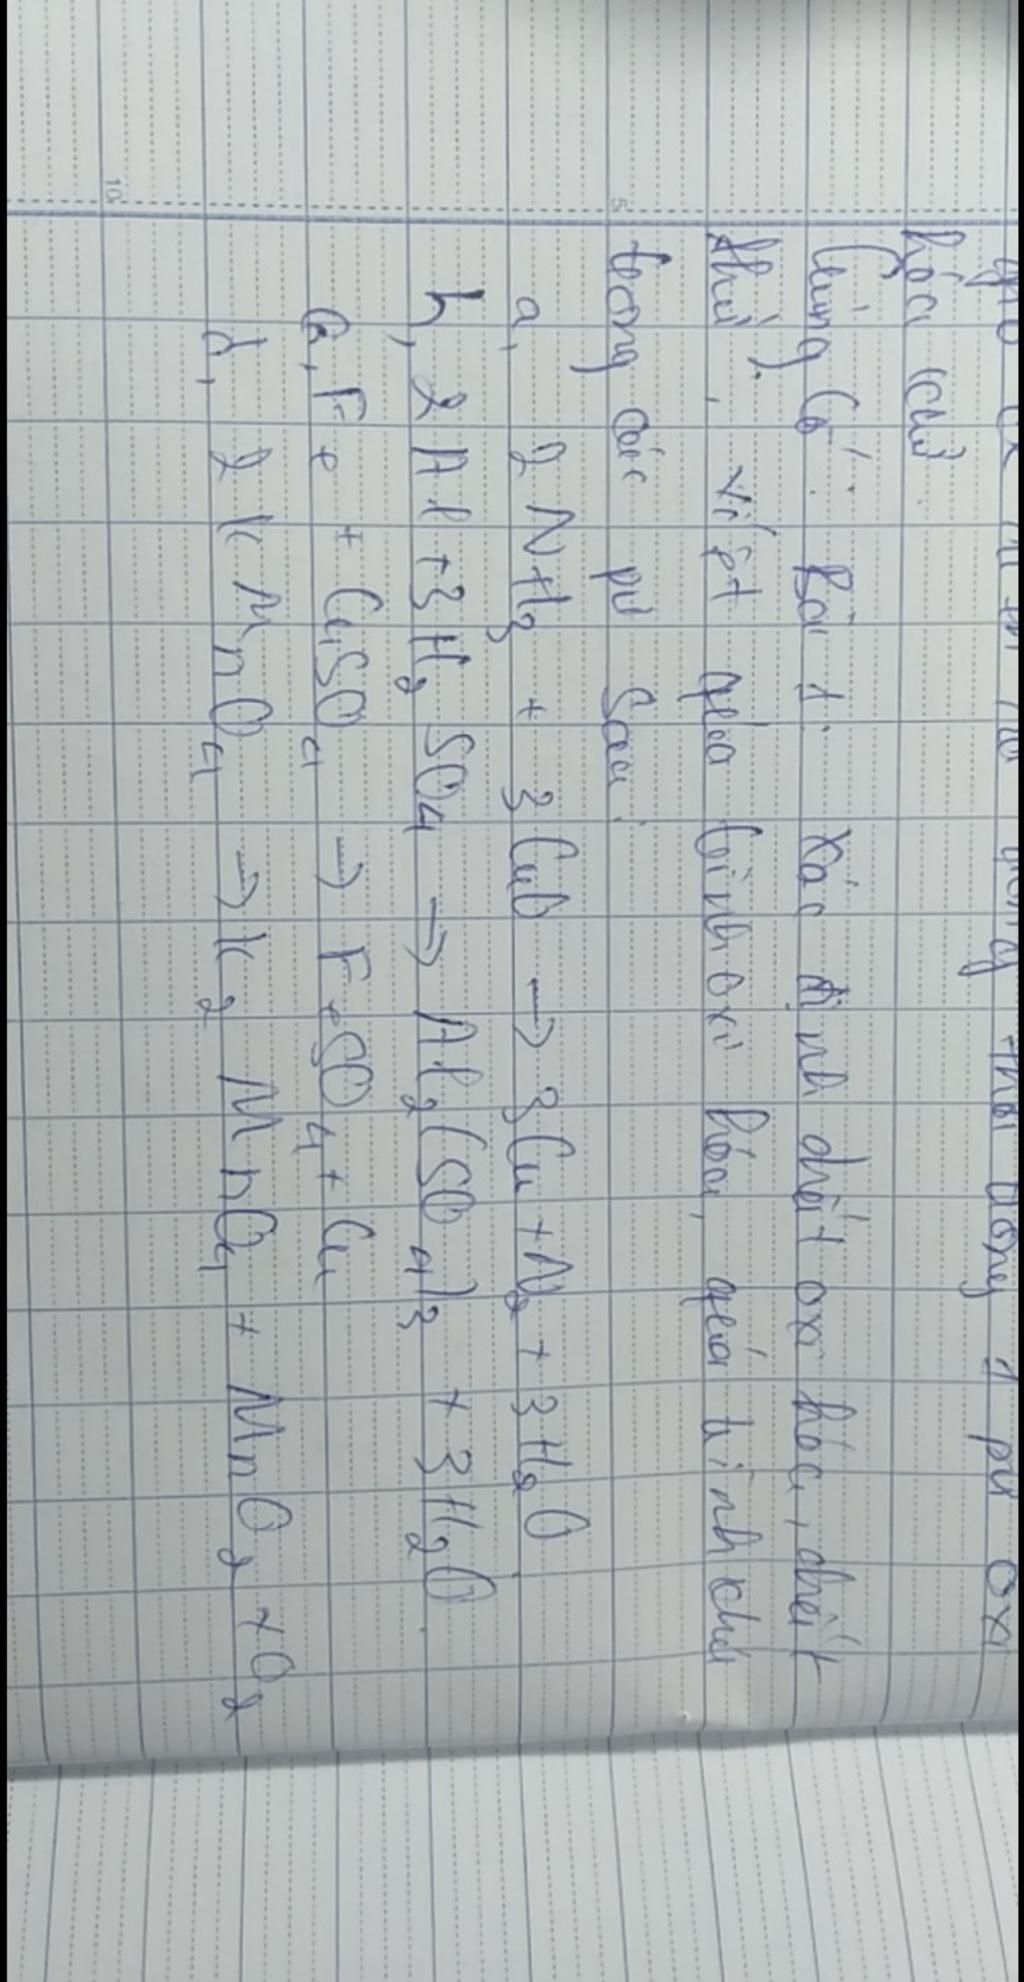 hóa khử.
Củng cố: Bài 1: Xác định chất oxi hóa, chất
khử, viết quá trình oxi hóa, quá trình khử
trong các pư sau:
a, 2NH₃ + 3CuO → 3Cu + N₂ + 3H₂O
b, 2Al + 3H₂SO₄ → Al₂(SO₄)₃ + 3H₂O
c, Fe + CuSO₄ → FeSO₄ + Cu
d, 2KMnO₄ → K₂MnO₄ + MnO₂ + O₂
5
10